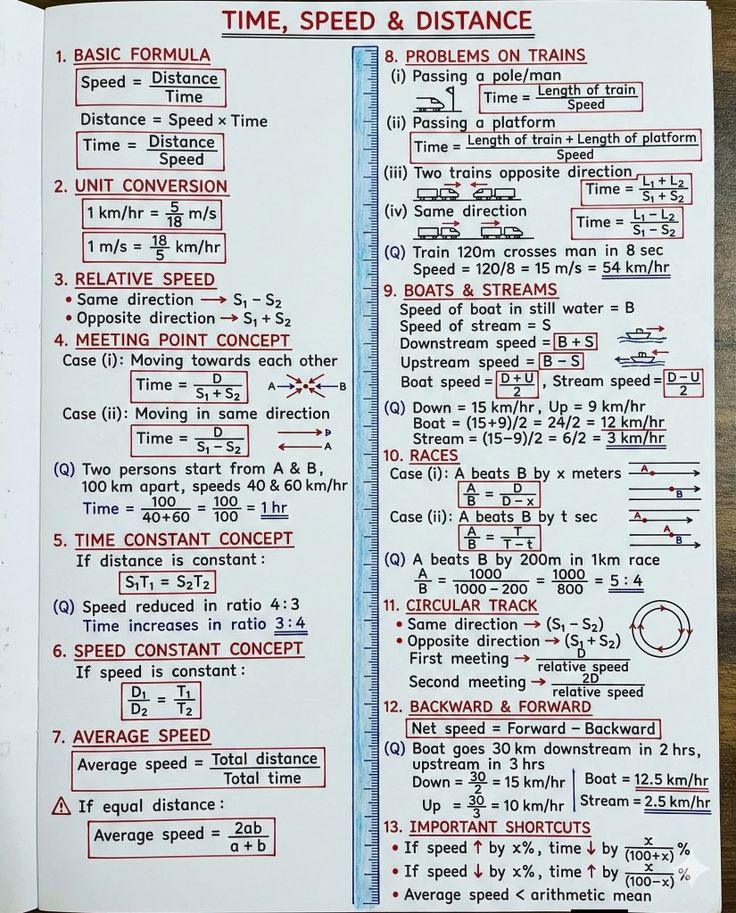 TIME, SPEED & DISTANCE
1. BASIC FORMULA
Speed = Distance / Time
Distance = Speed × Time
Time = Distance / Speed
2. UNIT CONVERSION
1 km/hr = 5/18 m/s
1 m/s = 18/5 km/hr
3. RELATIVE SPEED
• Same direction → S₁ − S₂
• Opposite direction → S₁ + S₂
4. MEETING POINT CONCEPT
Case (i): Moving towards each other
Time = D / (S₁ + S₂)
A B
Case (ii): Moving in same direction
Time = D / (S₁ − S₂)
A
(Q) Two persons start from A & B,
100 km apart, speeds 40 & 60 km/hr
Time = 100 / (40+60) = 100/100 = 1 hr
5. TIME CONSTANT CONCEPT
If distance is constant:
S₁T₁ = S₂T₂
(Q) Speed reduced in ratio 4:3
Time increases in ratio 3:4
6. SPEED CONSTANT CONCEPT
If speed is constant:
D₁/D₂ = T₁/T₂
7. AVERAGE SPEED
Average speed = Total distance / Total time
⚠ If equal distance:
Average speed = 2ab / (a + b)
8. PROBLEMS ON TRAINS
(i) Passing a pole/man
Time = Length of train / Speed
(ii) Passing a platform
Time = Length of train + Length of platform / Speed
(iii) Two trains opposite direction
Time = (L₁ + L₂) / (S₁ + S₂)
(iv) Same direction
Time = (L₁ − L₂) / (S₁ − S₂)
(Q) Train 120m crosses man in 8 sec
Speed = 120/8 = 15 m/s = 54 km/hr
9. BOATS & STREAMS
Speed of boat in still water = B
Speed of stream = S
Downstream speed = B + S
Upstream speed = B − S
Boat speed = (D + U)/2 , Stream speed = (D − U)/2
(Q) Down = 15 km/hr, Up = 9 km/hr
Boat = (15+9)/2 = 24/2 = 12 km/hr
Stream = (15−9)/2 = 6/2 = 3 km/hr
10. RACES
Case (i): A beats B by x meters
A/B = D / (D − x)
A
B
Case (ii): A beats B by t sec
A/B = T / (T − t)
A
B
(Q) A beats B by 200m in 1km race
A/B = 1000 / (1000 − 200) = 1000/800 = 5 : 4
11. CIRCULAR TRACK
• Same direction → (S₁ − S₂)
• Opposite direction → (S₁ + S₂)
First meeting → D / relative speed
Second meeting → 2D / relative speed
12. BACKWARD & FORWARD
Net speed = Forward − Backward
(Q) Boat goes 30 km downstream in 2 hrs,
upstream in 3 hrs
Down = 30/2 = 15 km/hr
Up = 30/3 = 10 km/hr
Boat = 12.5 km/hr
Stream = 2.5 km/hr
13. IMPORTANT SHORTCUTS
• If speed ↑ by x%, time ↓ by x/(100+x) %
• If speed ↓ by x%, time ↑ by x/(100−x) %
• Average speed < arithmetic mean